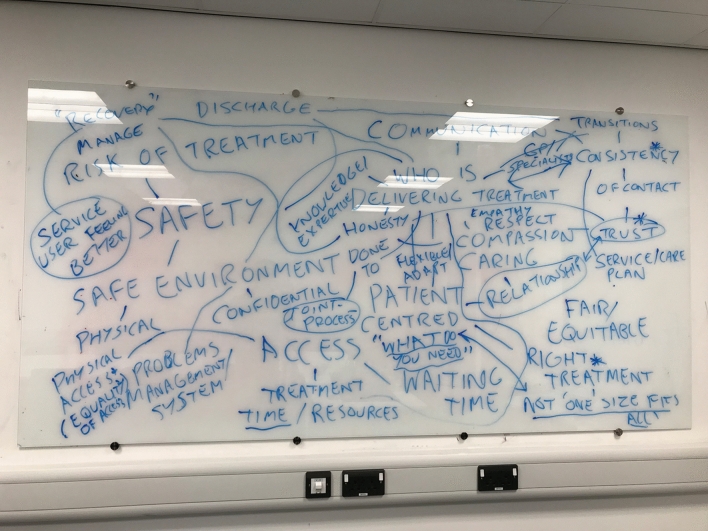 "RECOVERY"
MANAGE
RISK OF TREATMENT
DISCHARGE
COMMUNICATION
TRANSITIONS
GP/
SPECIALIST
CONSISTENCY*
OF CONTACT
*
TRUST
SERVICE/CARE
PLAN
WHO IS
DELIVERING TREATMENT
KNOWLEDGE/
EXPERTISE
HONESTY
EMPATHY
RESPECT
COMPASSION
CARING
RELATIONSHIP
SERVICE
USER FEELING
BETTER
SAFETY
SAFE ENVIRONMENT
DONE
TO
FLEXIBLE/
ADAPT
PATIENT
CENTRED
"WHAT DO
YOU NEED"
CONFIDENTIAL
JOINT-
PROCESS
PHYSICAL
PHYSICAL
ACCESS+
(EQUALITY
OF ACCESS)
PROBLEMS
MANAGEMENT/
SYSTEM
ACCESS
TREATMENT
TIME/RESOURCES
WAITING
TIME
FAIR/
EQUITABLE
RIGHT*
TREATMENT
NOT 'ONE SIZE FITS
ALL'